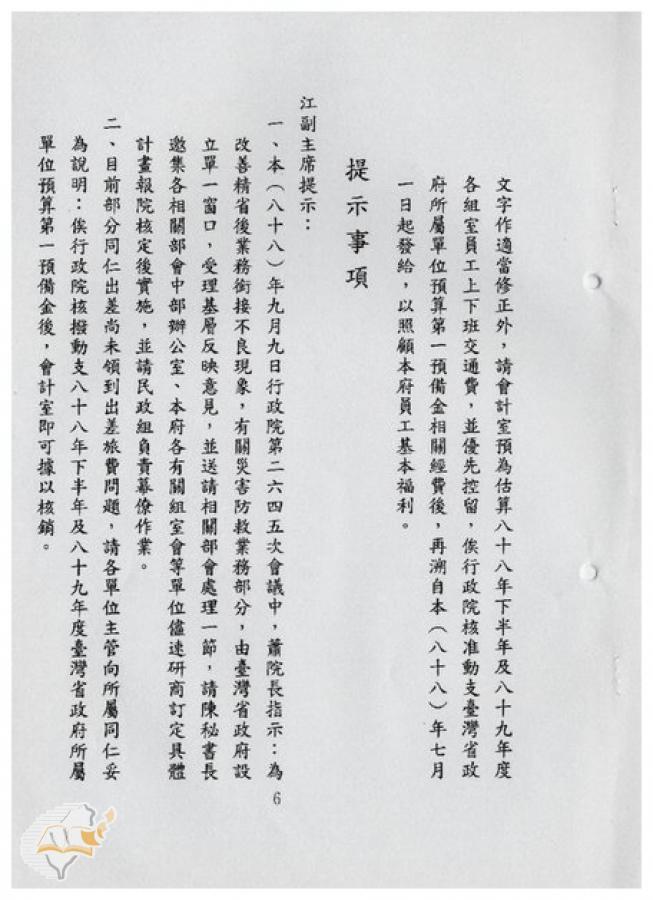 文字作適當修正外，請會計室預為估算八十八年下半年及八十九年度
各組室員工上下班交通費，並優先控留，俟行政院核准動支臺灣省政
府所屬單位預算第一預備金相關經費後，再溯自本（八十八）年七月
一日起發給，以照顧本府員工基本福利。
提示事項
江副主席提示：
一、本（八十八）年九月九日行政院第二六四五次會議中，蕭院長指示：為
改善精省後業務銜接不良現象，有關災害防救業務部分，由臺灣省政府設
立單一窗口，受理基層反映意見，並送請相關部會處理一節，請陳秘書長
邀集各相關部會中部辦公室、本府各有關組室會等單位儘速研商訂定具體
計畫報院核定後實施，並請民政組負責幕僚作業。
二、目前部分同仁出差尚未領到出差旅費問題，請各單位主管向所屬同仁妥
為說明：俟行政院核撥動支八十八年下半年及八十九年度臺灣省政府所屬
單位預算第一預備金後，會計室即可據以核銷。
6